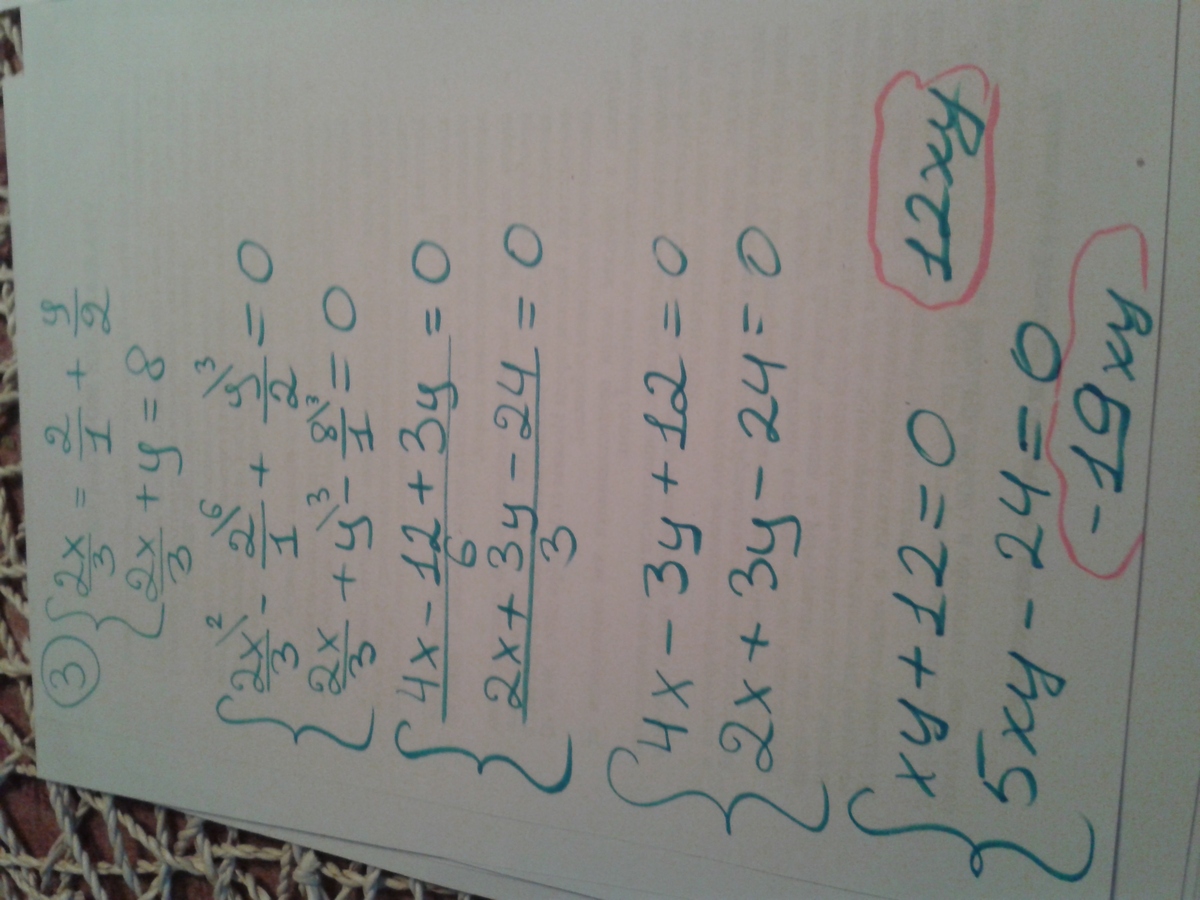 ③ { 2x/3 = 2/1 + y/2
2x/3 + y = 8
{ 2x\²/3 - 2\⁶/1 + y\³/2 = 0
2x/3 + y\³ - 8\³/1 = 0
{ (4x - 12 + 3y)/6 = 0
(2x + 3y - 24)/3 = 0
{ 4x - 3y + 12 = 0
2x + 3y - 24 = 0
{ xy + 12 = 0 12xy
5xy - 24 = 0
-19xy